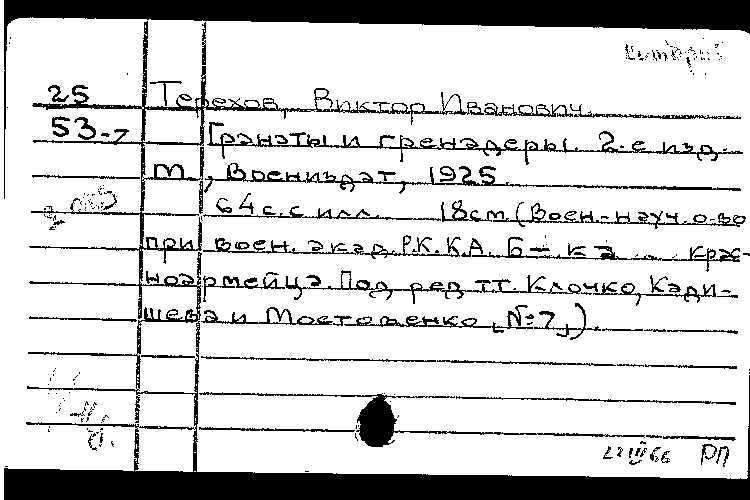 25 Терехов, Виктор Иванович.
53-7 Гранаты и гренадеры. 2-е изд.
М., Воениздат, 1925.
64 с. с илл. 18см. (Воен.-науч. о-во
при воен. акад. Р.К.К.А. Б-ка крас-
ноармейца. Под ред. тт. Клочко, Кади-
шева и Мостовенко [№7]).
22 III 66 РП